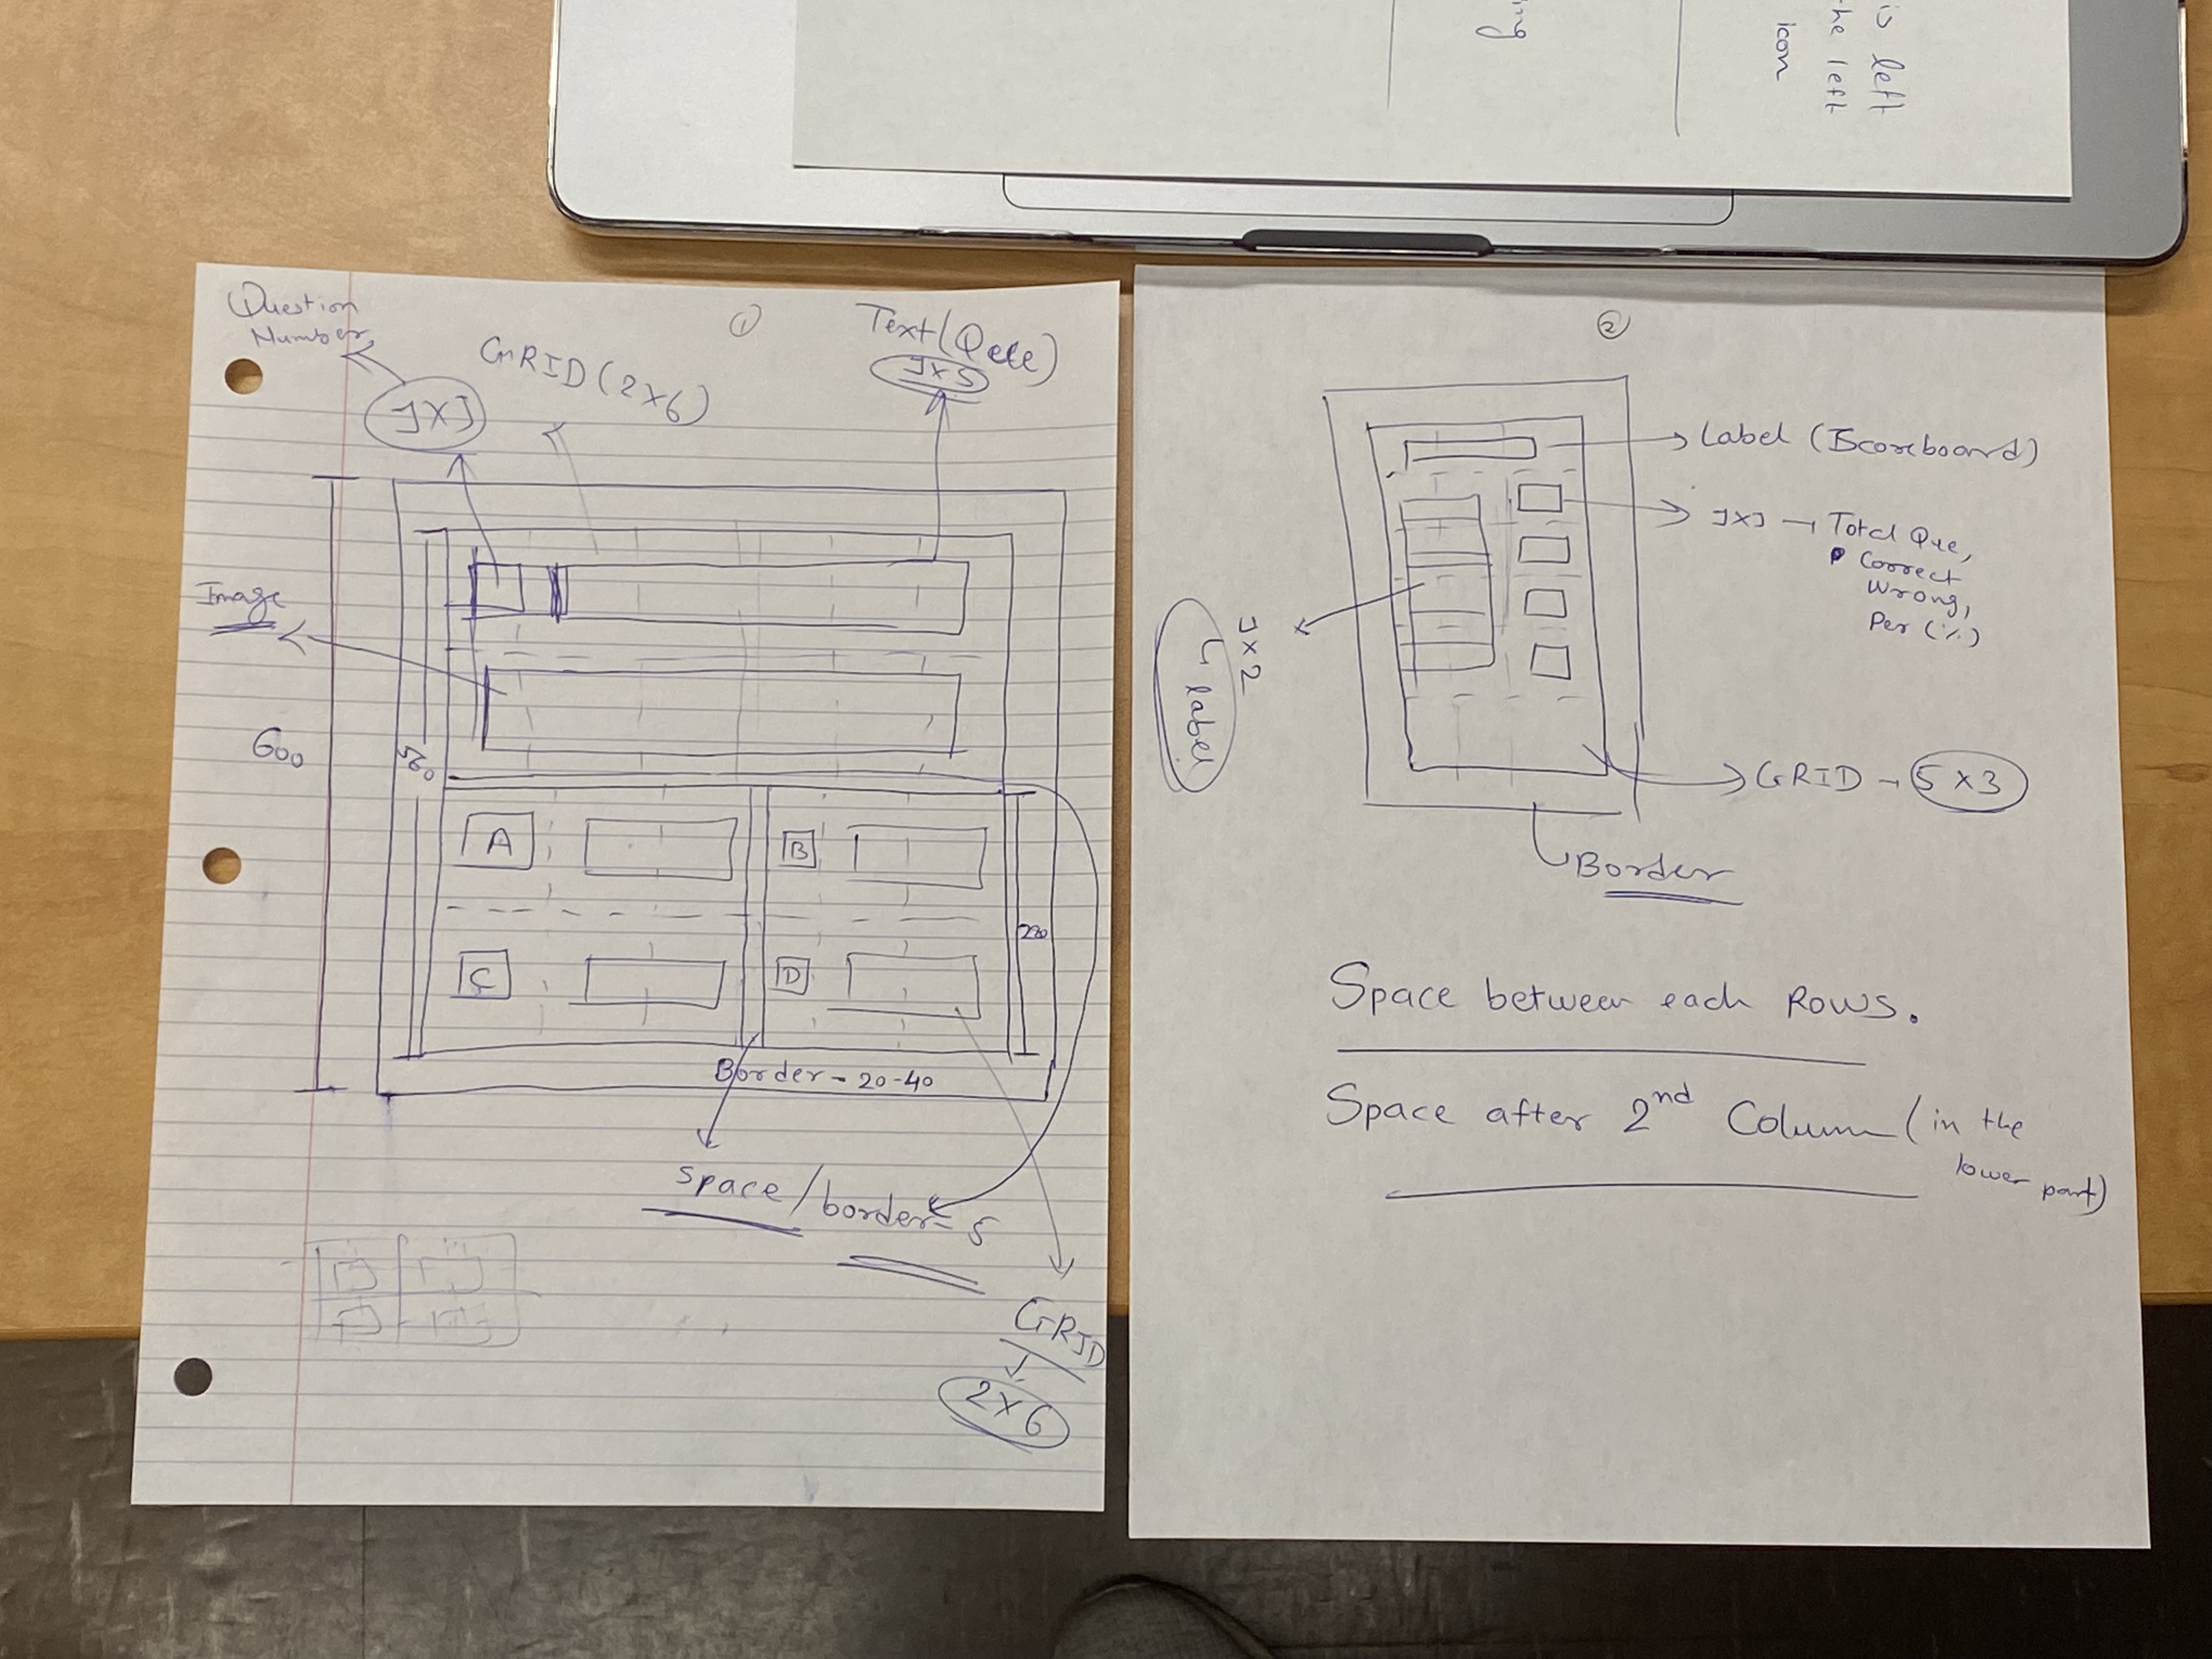 is left
the left
icon
ing
1
Question
Number
1X1
GRID (2x6)
Text (Qee)
1x5
Image
600
560
A
B
C
D
220
Border - 20-40
space / border = 5
GRID
2x6
2
Label (Scoreboard)
1x1 → Total Que,
Correct
Wrong,
Per (%)
1x2
4 label
GRID - 5 x 3
Border
Space between each Rows.
Space after 2nd Column (in the
lower part)